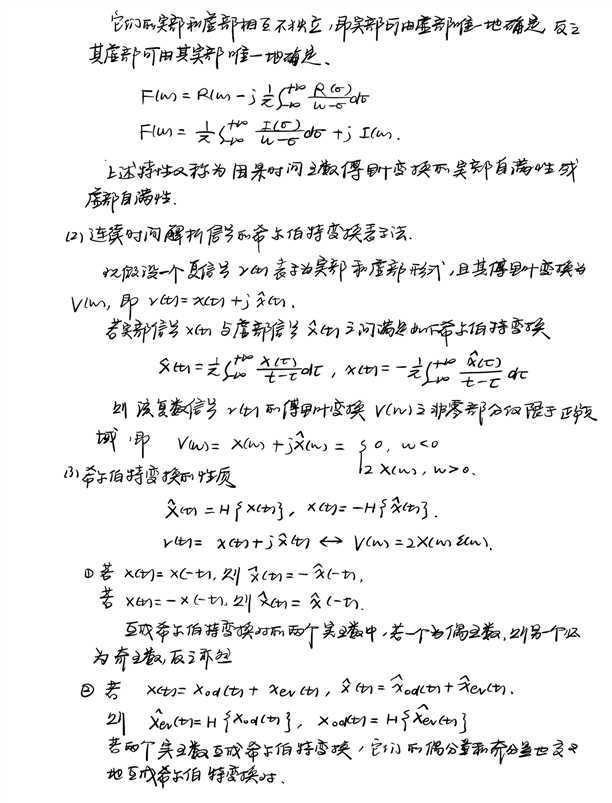 它们的实部和虚部相互不独立,即实部可由虚部唯一地确定,反之
其虚部可由其实部唯一地确定、
F(w) = R(w) - j 1/π ∫_{-∞}^{+∞} R(σ)/(w-σ) dσ
F(w) = 1/π ∫_{-∞}^{+∞} I(σ)/(w-σ) dσ + j I(w).
上述特性又称为因果时间函数傅里叶变换的实部自满性或
虚部自满性.
(2) 连续时间解析信号的希尔伯特变换表示法.
现假设一个复信号 v(t) 表示为实部和虚部形式,且其傅里叶变换为
V(w), 即 v(t) = x(t) + j x̂(t).
若实部信号 x(t) 与虚部信号 x̂(t) 之间满足如下希尔伯特变换
x̂(t) = 1/π ∫_{-∞}^{+∞} x(τ)/(t-τ) dτ , x(t) = -1/π ∫_{-∞}^{+∞} x̂(τ)/(t-τ) dτ
则 该复数信号 v(t) 的傅里叶变换 V(w) 之非零部分仅限于正频
域,即 V(w) = X(w) + j X̂(w) = { 0, w<0
2X(w), w>0.
(3) 希尔伯特变换的性质
x̂(t) = H{x(t)}, x(t) = -H{x̂(t)}.
v(t) = x(t) + j x̂(t) ↔ V(w) = 2X(w) ε(w).
① 若 x(t) = x(-t), 则 x̂(t) = -x̂(-t),
若 x(t) = -x(-t), 则 x̂(t) = x̂(-t).
互成希尔伯特变换对的两个实函数中,若一个为偶函数,则另一个必
为奇函数,反之亦然
② 若 x(t) = xod(t) + xev(t) , x̂(t) = x̂od(t) + x̂ev(t).
则 x̂ev(t) = H{xod(t)}, xod(t) = H{x̂ev(t)}
若两个实函数互成希尔伯特变换,它们的偶分量和奇分量也交叉
地互成希尔伯特变换对.